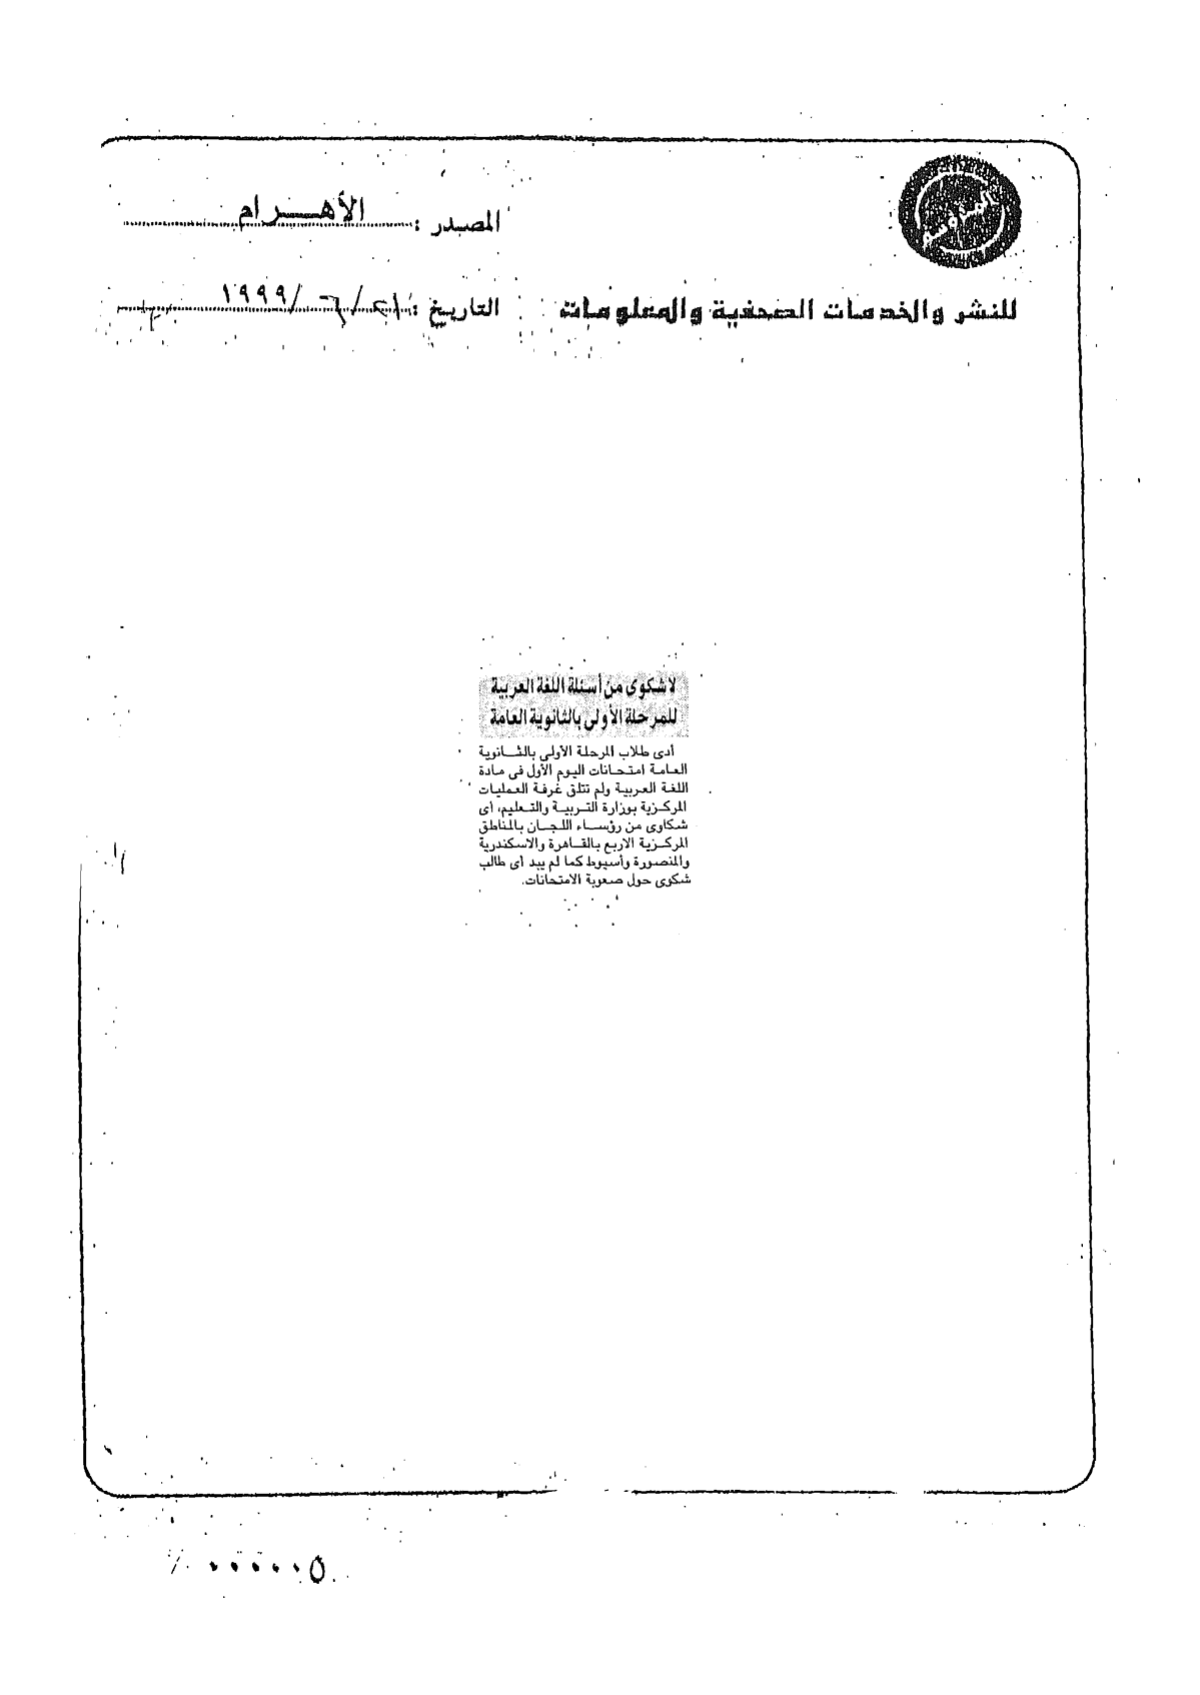 المصدر : الأهــرام
للنشر والخدمات الصحفية والمعلومات
التاريخ : ١٩٩٩/٦/
لا شكوى من أسئلة اللغة العربية
للمرحلة الأولى بالثانوية العامة
أدى طلاب المرحلة الأولى بالثــانوية
العامـة امتـحـانات اليوم الأول فى مـادة
اللغـة العـربيـة ولم تتلق غرفـة العـمليـات
المركـزية بوزارة التـربيـة والتـعليم، أى
شكاوى من رؤسـاء اللجـان بالمناطق
المركـزية الاربع بالقـاهرة والاسكندرية
والمنصورة وأسيوط كما لم يبد أى طالب
شكوى حول صعوبة الامتحانات.